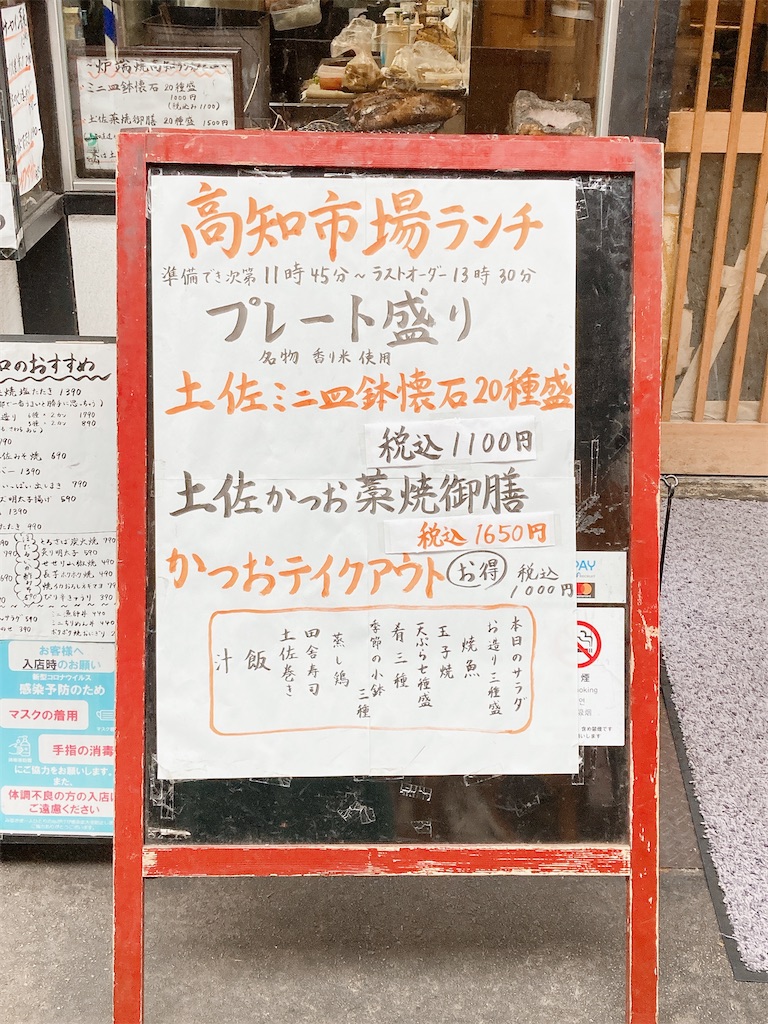 高知市場ランチ
準備でき次第 11時45分〜ラストオーダー13時30分
プレート盛り
名物 香り米 使用
土佐ミニ皿鉢懐石20種盛
税込1100円
土佐かつお藁焼御膳
税込1650円
かつおテイクアウト お得 税込
1000円
本日のサラダ
お造り三種盛
焼魚
玉子焼
天ぷら七種盛
肴三種
季節の小鉢三種
蒸し鶏
田舎寿司
土佐巻き
飯
汁
炉端焼高知
ミニ皿鉢懐石 20種盛
1000円
(税込み1100)
土佐藁焼御膳 20種盛 1500円
のおすすめ
焼塩たたき 1390
とろさば炭火焼
炙り明太子 590
PAY
お客様へ
入店時のお願い
新型コロナウイルス
感染予防のため
マスクの着用
手指の消毒
にご協力をお願いします。
また、
体調不良の方の入店は
ご遠慮ください
煙
oking